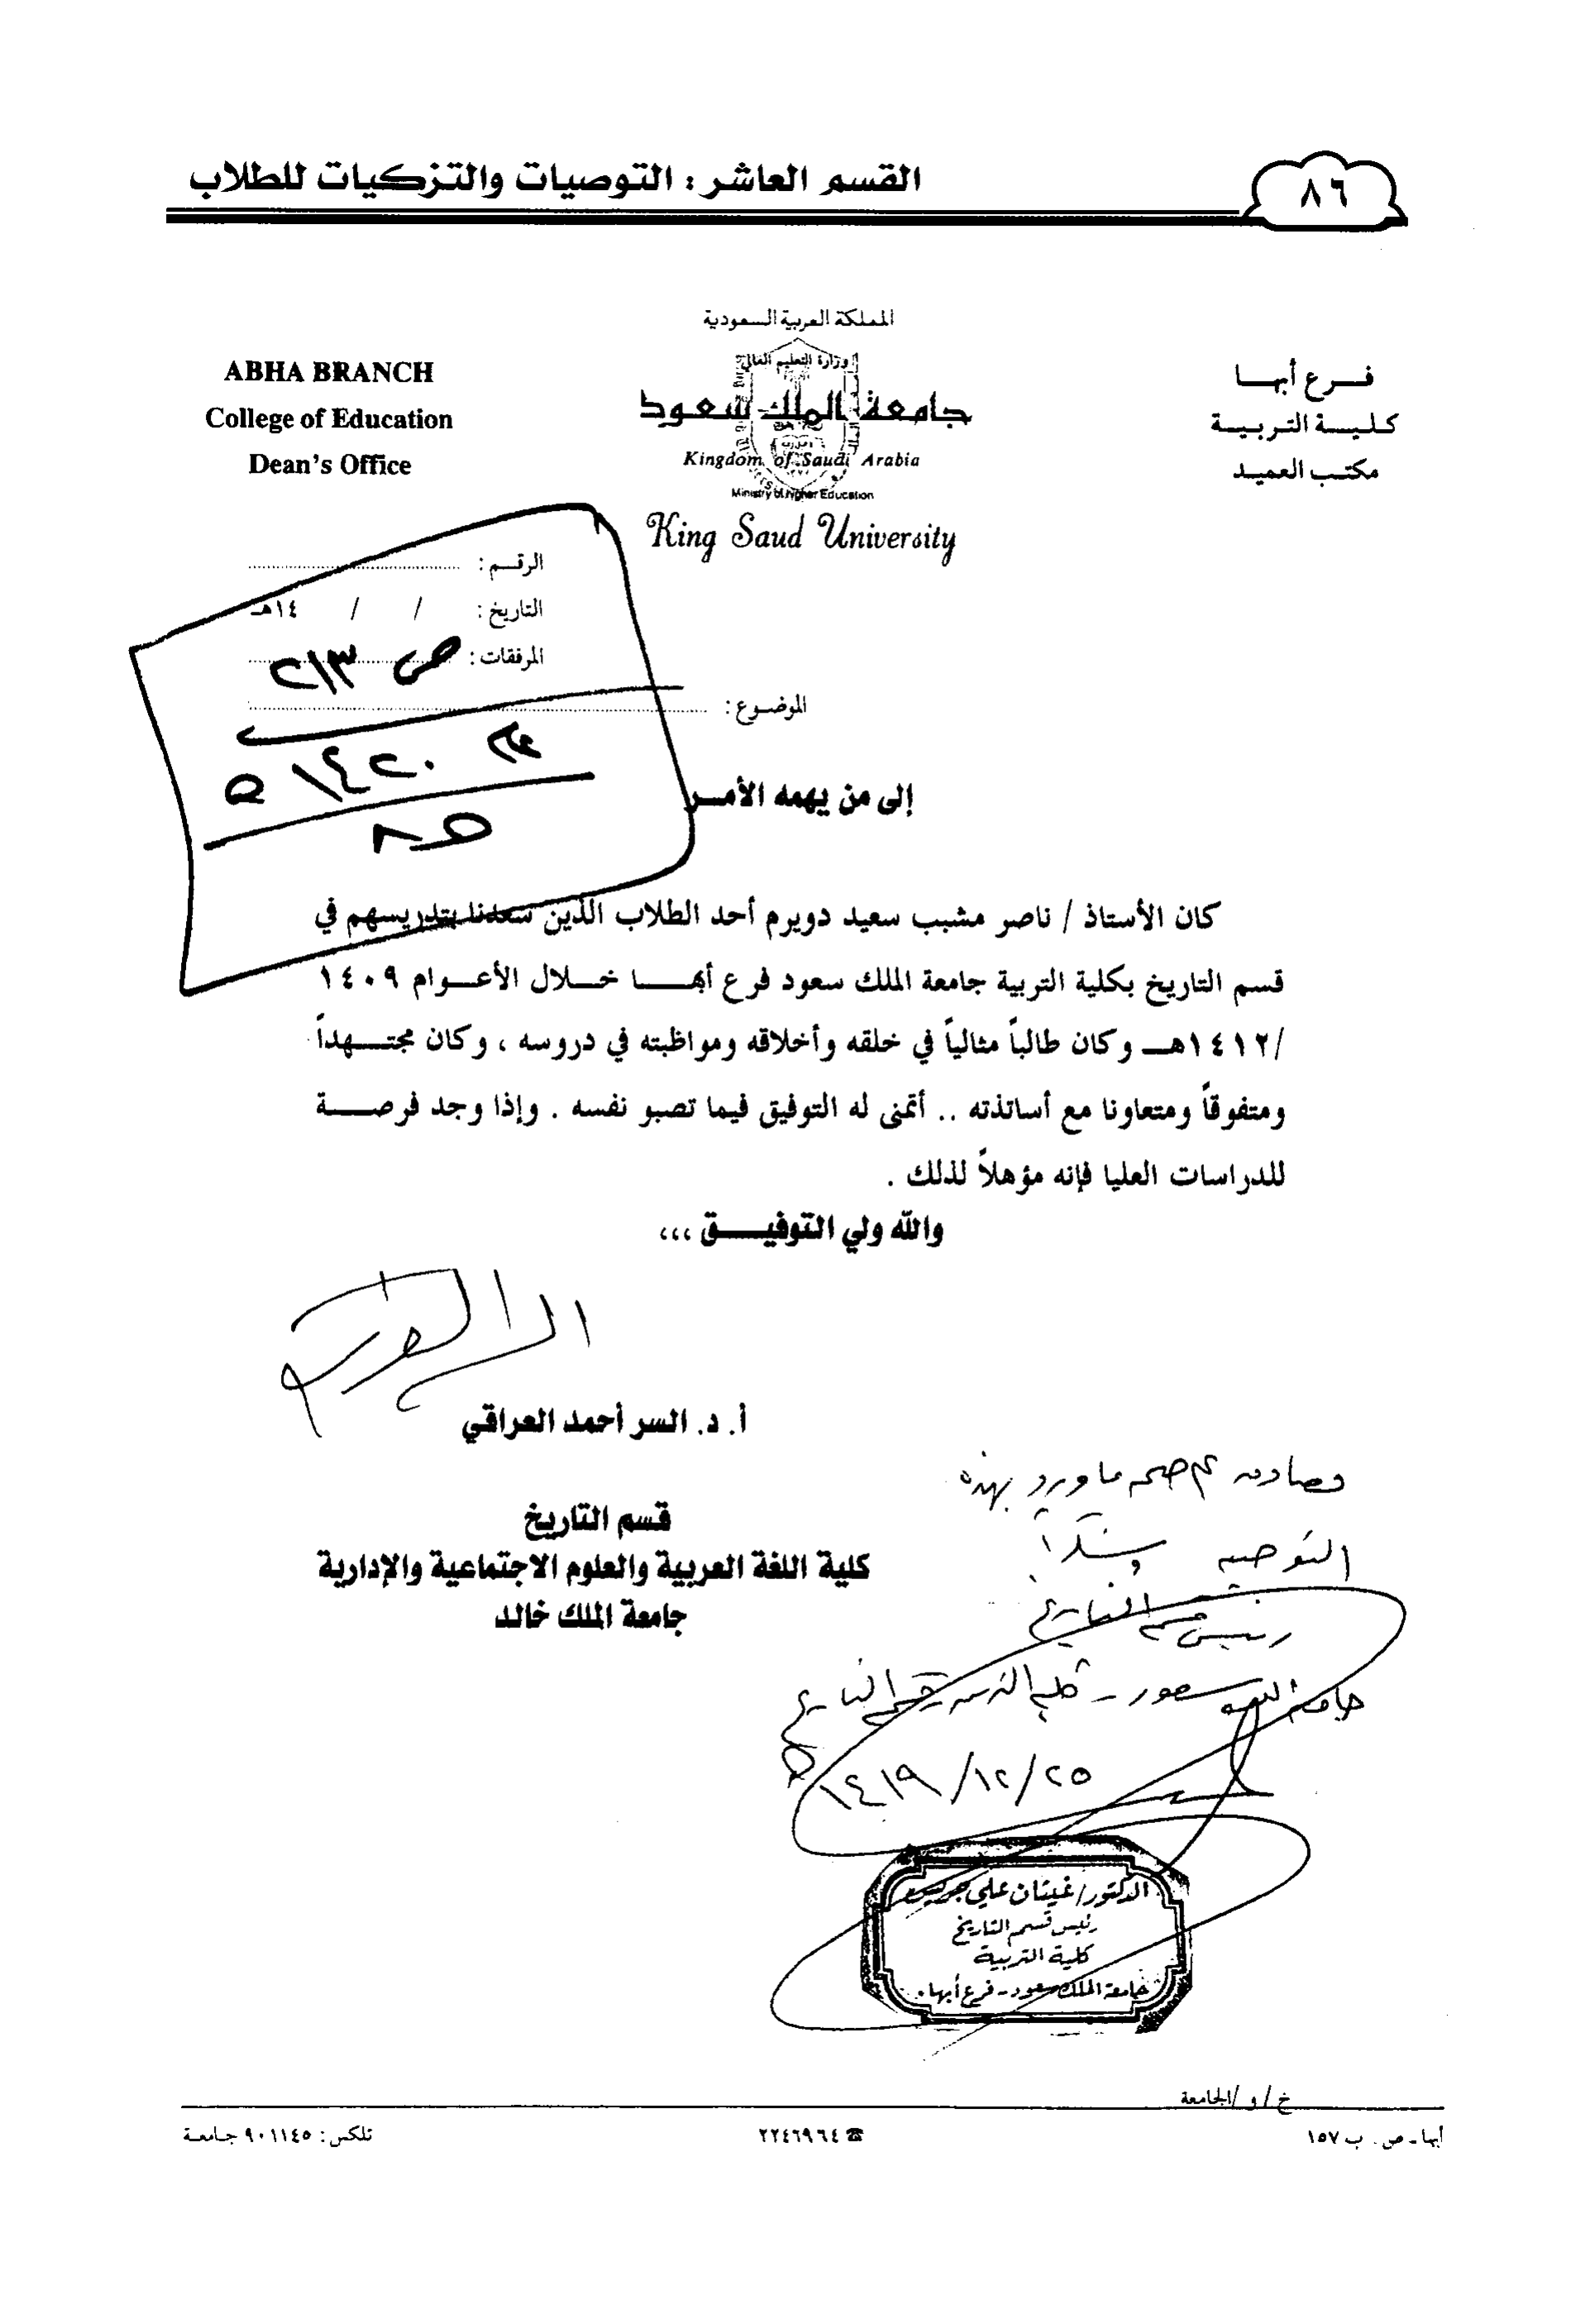 ٨٦
القسم العاشر : التوصيات والتزكيات للطلاب
المملكة العربية السعودية
وزارة التعليم العالي
جامعة الملك سعود
Kingdom of Saudi Arabia
Ministry of higher Education
King Saud University
فرع أبها
كلية التربية
مكتب العميد
ABHA BRANCH
College of Education
Dean's Office
الرقم :
التاريخ : / / ١٤هـ
المرفقات : ص ٢١٣
الموضوع :
عام ١٤٢٠ هـ
إلى من يهمه الأمر
كان الأستاذ / ناصر مشبب سعيد دويرم أحد الطلاب الذين سعدنا بتدريسهم في
قسم التاريخ بكلية التربية جامعة الملك سعود فرع أبها خلال الأعوام ١٤٠٩
/١٤١٢هـ وكان طالباً مثالياً في خلقه وأخلاقه ومواظبته في دروسه ، وكان مجتهداً
ومتفوقاً ومتعاونا مع أساتذته .. أتمنى له التوفيق فيما تصبو نفسه . وإذا وجد فرصة
للدراسات العليا فإنه مؤهلاً لذلك .
والله ولي التوفيق ،،،
أ. د. السر أحمد العراقي
قسم التاريخ
كلية اللغة العربية والعلوم الاجتماعية والإدارية
جامعة الملك خالد
صحة ما ورد بهذه
التوصية وشكراً
رئيس قسم التاريخ
جامعة الملك سعود - كلية التربية قسم التاريخ
٢٥/١٢/١٤١٩ هـ
الدكتور/ غيثان علي جريس
رئيس قسم التاريخ
كلية التربية
جامعة الملك سعود - فرع أبها
خ / و /الجامعة
أبها ـ ص. ب ١٥٧
☎ ٢٢٤٦٩٦٤
تلكس : ٩٠١١٤٥ جامعة